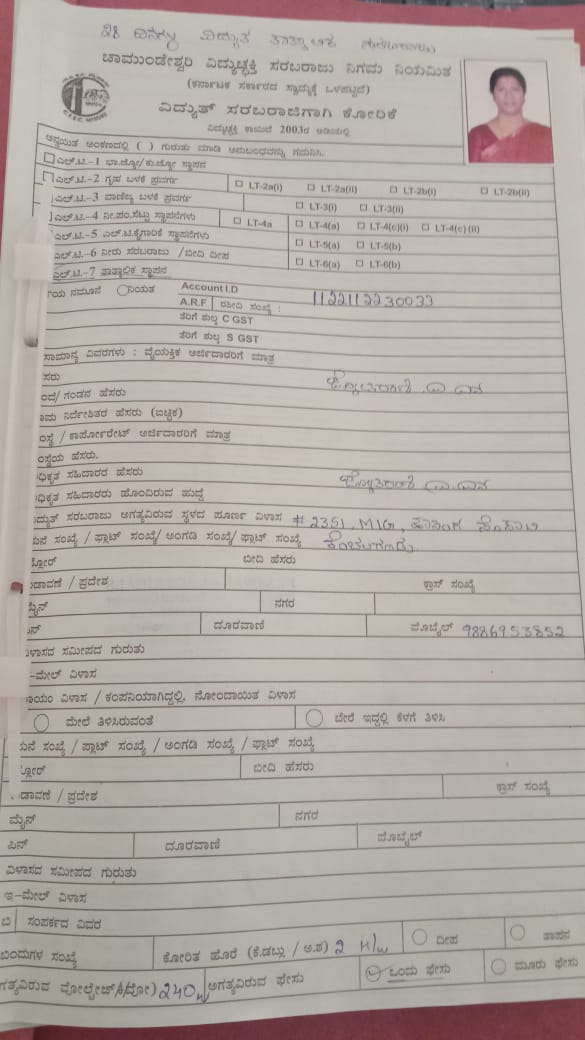 28 ದಿನಗಳು ವಿದ್ಯುತ ತಾತ್ಕಾಲಿಕ
ಚಾಮುಂಡೇಶ್ವರಿ ವಿದ್ಯುಚ್ಛಕ್ತಿ ಸರಬರಾಜು ನಿಗಮ ನಿಯಮಿತ
(ಕರ್ನಾಟಕ ಸರ್ಕಾರದ ಸ್ವಾಮ್ಯಕ್ಕೆ ಒಳಪಟ್ಟಿದೆ)
ವಿದ್ಯುತ್ ಸರಬರಾಜಿಗಾಗಿ ಕೋರಿಕೆ
ವಿದ್ಯುಚ್ಛಕ್ತಿ ಕಾಯಿದೆ 2003ರ ಅಡಿಯಲ್ಲಿ
ಅನ್ವಯಿತ ಅಂಕಣದಲ್ಲಿ ( ) ಗುರುತು ಮಾಡಿ ಅನುಬಂಧವನ್ನು ಗಮನಿಸಿ.
ಎಲ್.ಟಿ.-1 ಭಾ.ಜ್ಯೋ/ಕು.ಜ್ಯೋ ಸ್ಥಾಪನ
ಎಲ್.ಟಿ.-2 ಗೃಹ ಬಳಕೆ ಪ್ರವರ್ಗ LT-2a(i) LT-2a(ii) LT-2b(i) LT-2b(ii)
ಎಲ್.ಟಿ.-3 ವಾಣಿಜ್ಯ ಬಳಕೆ ಪ್ರವರ್ಗ LT-3(i) LT-3(ii)
ಎಲ್.ಟಿ.-4 ನೀ.ಪಂ.ಸೆಟ್ಟು ಸ್ಥಾಪನೆಗಳು LT-4a LT-4(a) LT-4(c)(i) LT-4(c)(ii)
ಎಲ್.ಟಿ.-5 ಎಲ್.ಟಿ.ಕೈಗಾರಿಕೆ ಸ್ಥಾಪನೆಗಳು LT-5(a) LT-5(b)
ಎಲ್.ಟಿ.-6 ನೀರು ಸರಬರಾಜು /ಬೀದಿ ದೀಪ LT-6(a) LT-6(b)
ಎಲ್.ಟಿ.-7 ತಾತ್ಕಾಲಿಕ ಸ್ಥಾಪನ
ಯ ನಮೂನೆ ನಿಯತ Account I.D
A.R.F ರಶೀದಿ ಸಂಖ್ಯೆ : 1122112230033
ತೆರಿಗೆ ಶುಲ್ಕ C GST
ತೆರಿಗೆ ಶುಲ್ಕ S GST
ಸಾಮಾನ್ಯ ವಿವರಗಳು : ವೈಯಕ್ತಿಕ ಅರ್ಜಿದಾರರಿಗೆ ಮಾತ್ರ
ಸರು
ಂದೆ/ ಗಂಡನ ಹೆಸರು
ಾಮ ನಿರ್ದೇಶಿತರ ಹೆಸರು (ಐಚ್ಛಿಕ)
ಂಸ್ಥೆ / ಕಾರ್ಪೋರೇಟ್ ಅರ್ಜಿದಾರರಿಗೆ ಮಾತ್ರ
ಂಸ್ಥೆಯ ಹೆಸರು.
ಧಿಕೃತ ಸಹಿದಾರರ ಹೆಸರು
ಧಿಕೃತ ಸಹಿದಾರರು ಹೊಂದಿರುವ ಹುದ್ದೆ
ದ್ಯುತ್ ಸರಬರಾಜು ಅಗತ್ಯವಿರುವ ಸ್ಥಳದ ಪೂರ್ಣ ವಿಳಾಸ # 2351, MIG,
ುನೆ ಸಂಖ್ಯೆ / ಫ್ಲಾಟ್ ಸಂಖ್ಯೆ/ ಅಂಗಡಿ ಸಂಖ್ಯೆ/ ಫ್ಲಾಟ್ ಸಂಖ್ಯೆ
ಫ್ಲೋರ್ ಬೀದಿ ಹೆಸರು
ಡಾವಣೆ / ಪ್ರದೇಶ ಕ್ರಾಸ್ ಸಂಖ್ಯೆ
ಮೈನ್ ನಗರ
ಪಿನ್ ದೂರವಾಣಿ ಮೊಬೈಲ್ 9886953852
ಳಾಸದ ಸಮೀಪದ ಗುರುತು
-ಮೇಲ್ ವಿಳಾಸ
ಾಯಂ ವಿಳಾಸ / ಕಂಪನಿಯಾಗಿದ್ದಲ್ಲಿ, ನೋಂದಾಯಿತ ವಿಳಾಸ
ಮೇಲೆ ತಿಳಿಸಿರುವಂತೆ ಬೇರೆ ಇದ್ದಲ್ಲಿ ಕೆಳಗೆ ತಿಳಿಸಿ
ುನೆ ಸಂಖ್ಯೆ / ಪ್ಲಾಟ್ ಸಂಖ್ಯೆ / ಅಂಗಡಿ ಸಂಖ್ಯೆ / ಫ್ಲಾಟ್ ಸಂಖ್ಯೆ
ಫ್ಲೋರ್ ಬೀದಿ ಹೆಸರು
ಡಾವಣೆ / ಪ್ರದೇಶ ಕ್ರಾಸ್ ಸಂಖ್ಯೆ
ಮೈನ್ ನಗರ
ಪಿನ್ ದೂರವಾಣಿ ಮೊಬೈಲ್
ವಿಳಾಸದ ಸಮೀಪದ ಗುರುತು
ಇ-ಮೇಲ್ ವಿಳಾಸ
ಬಿ ಸಂಪರ್ಕದ ವಿವರ
ಬಿಂದುಗಳ ಸಂಖ್ಯೆ ಕೋರಿತ ಹೊರೆ (ಕೆ.ಡಬ್ಲು / ಅ.ಶ) 2 ದೀಪ ತಾಪನ
ಗತ್ಯವಿರುವ ವೋಲ್ಟೇಜ್ 240 ಅಗತ್ಯವಿರುವ ಫೇಸು ಒಂದು ಫೇಸು ಮೂರು ಫೇಸು